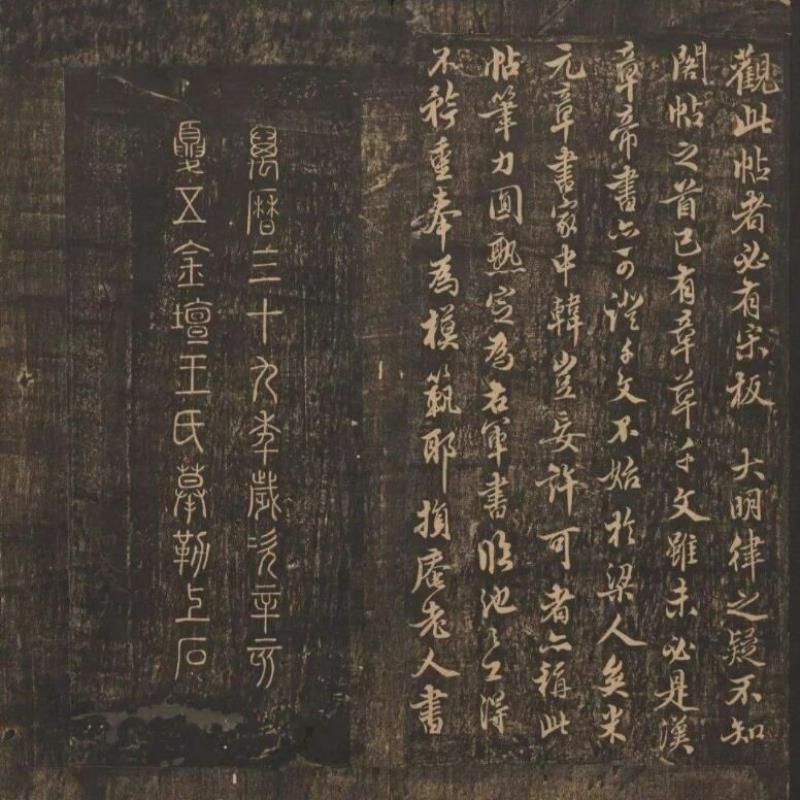 觀此帖者必有宋板 大明律之疑不知
閣帖之首已有章草千文雖未必是漢
章帝書亦可證千文不始於梁人矣米
元章書家申韓豈妄許可者亦稱此
帖筆力圓熟定為右軍書臨池之工得
不矜重奉為模範耶損庵老人書
萬曆三十九年歲次辛亥
夏五金壇王氏摹勒上石